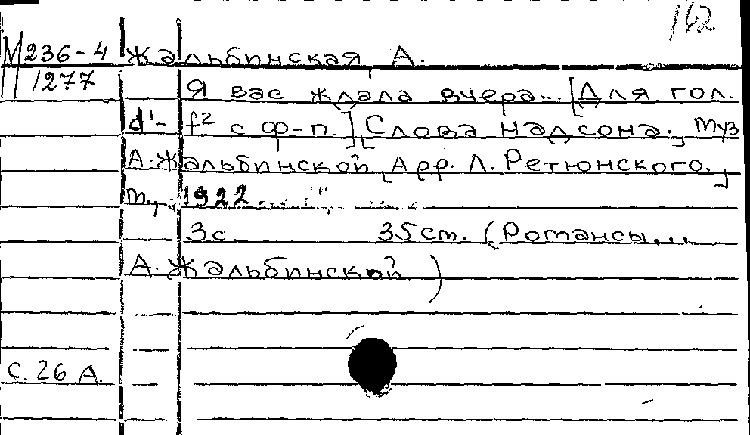 162
М 236-4 Жальбинская, А.
1277 Я вас ждала вчера... [Для гол.
d¹- f² с ф-п.] [Слова Надсона.] Муз
А. Жальбинской [Арр. Л. Ретюнского.]
М., 1922
3с 35cm. (Романсы...
А. Жальбинской)
С. 26 А.